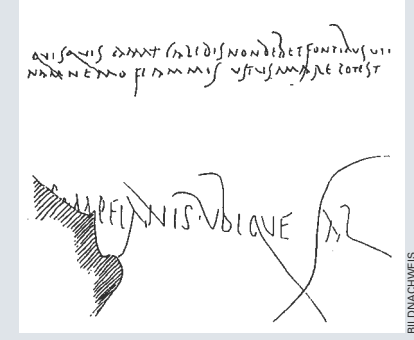 QVISQVIS AMAT CALIDIS NON DEBET FONTIBVS VTI
NAM NEMO FLAMMIS VSTVS AMARE POTEST
OMPEIANIS·VBIQVE SAL
BILDNACHWEIS